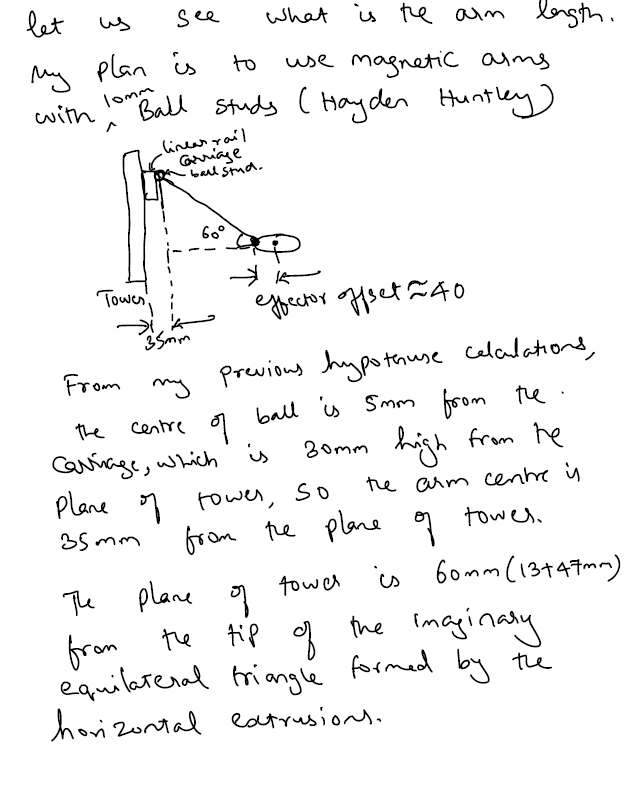 let us see what is the arm length.
My plan is to use magnetic arms
with 10mm Ball studs (Hayden Huntley)
linear rail
Carriage
ball stud.
60°
Tower
effector offset ≈ 40
35mm
From my previous hypotenuse calculations,
the centre of ball is 5mm from the
Carriage, which is 30mm high from the
plane of tower, so the arm centre is
35mm from the plane of tower.
The plane of tower is 60mm (13+47mm)
from the tip of the imaginary
equilateral triangle formed by the
horizontal extrusions.